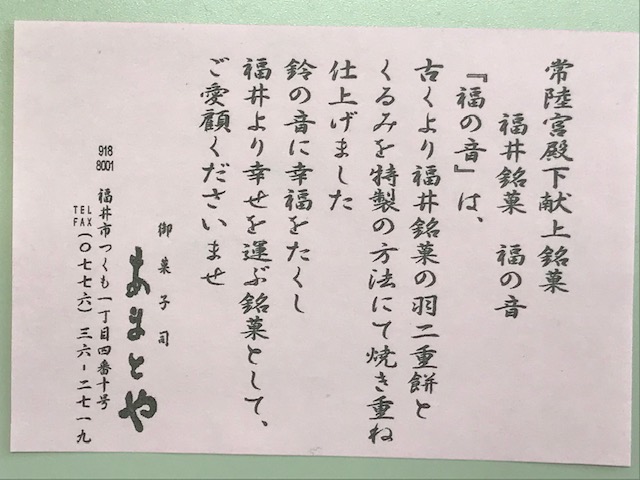 常陸宮殿下献上銘菓
福井銘菓 福の音
『福の音』は、
古くより福井銘菓の羽二重餅と
くるみを特製の方法にて焼き重ね
仕上げました
鈴の音に幸福をたくし
福井より幸せを運ぶ銘菓として、
ご愛顧くださいませ
御菓子司
あまとや
918
8001
福井市つくも一丁目四番十号
TEL
FAX
(〇七七六)三六ー二七一九